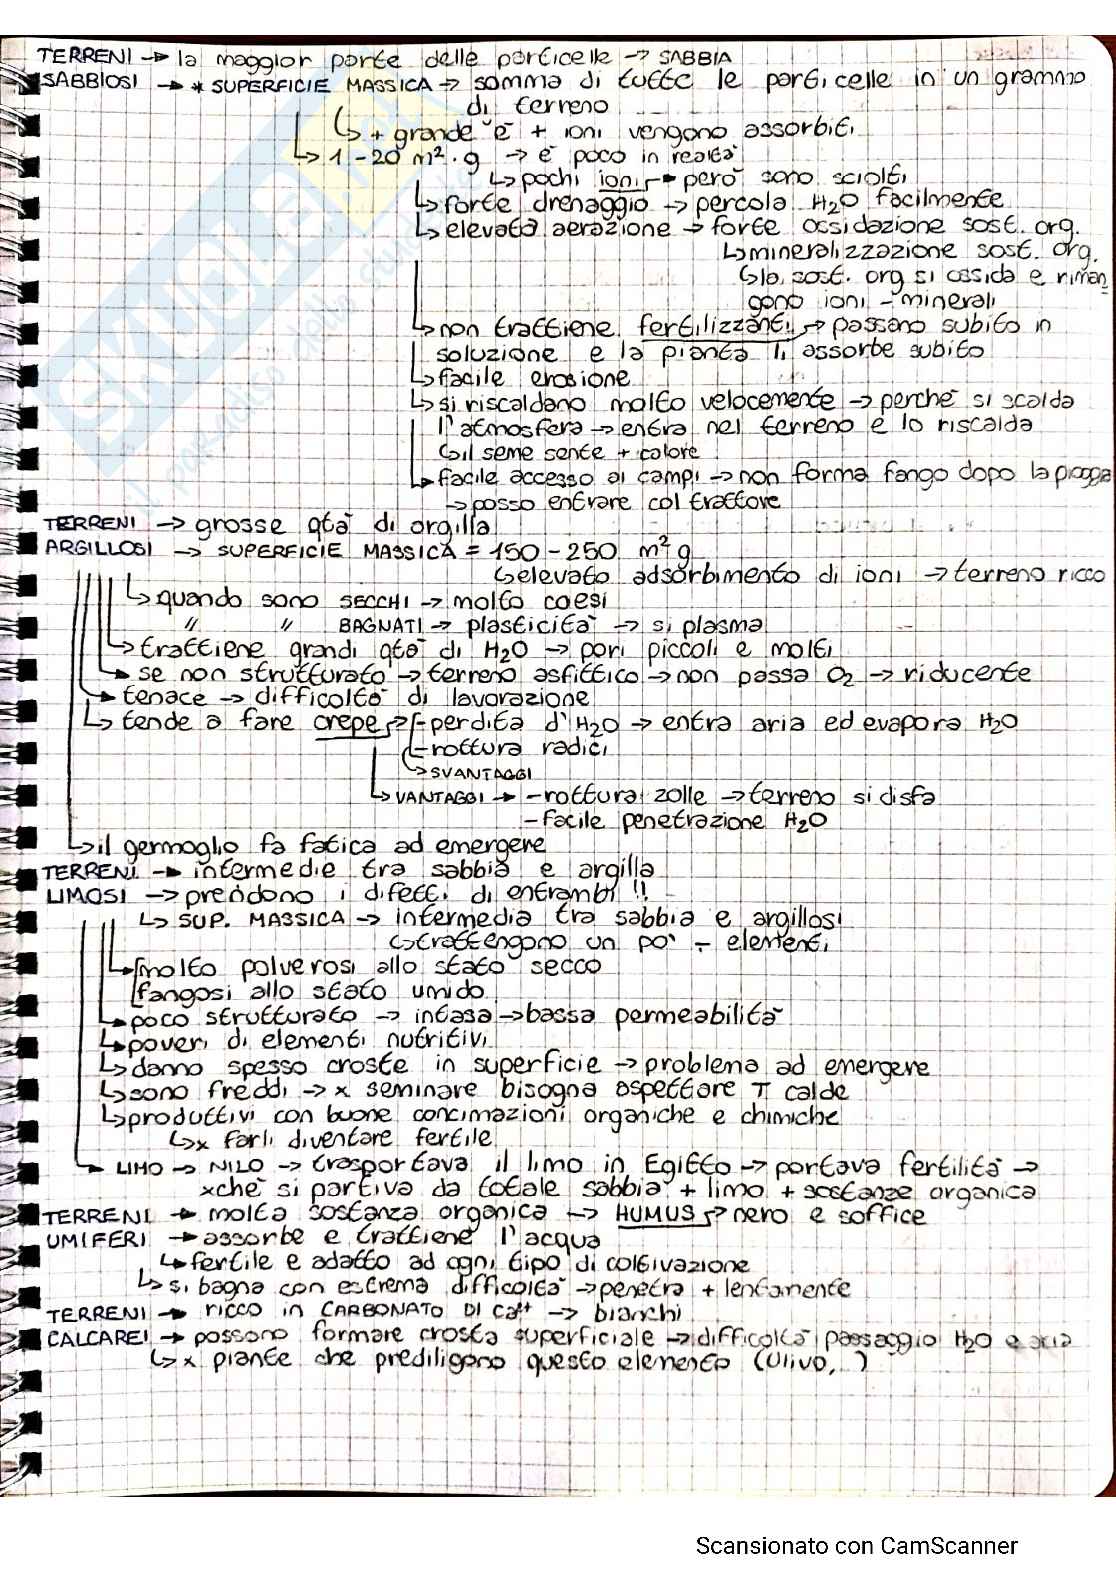 TERRENI → la maggior parte delle particelle → SABBIA
SABBIOSI → * SUPERFICIE MASSICA → somma di tutte le particelle in un grammo
di terreno
↳ + grande è + ioni vengono assorbiti
↳ 1 - 20 m². g → è poco in realtà
↳ pochi ioni → però sono sciolti
↳ forte drenaggio → percola H₂O facilmente
↳ elevata aerazione → forte ossidazione sost. org.
↳ mineralizzazione sost. org.
↳ la sost. org si ossida e riman
gono ioni - minerali
↳ non trattiene fertilizzanti → passano subito in
soluzione e la pianta li assorbe subito
↳ facile erosione
↳ si riscaldano molto velocemente → perché si scalda
l'atmosfera → entra nel terreno e lo riscalda
↳ il seme sente + calore
↳ facile accesso ai campi → non forma fango dopo la pioggia
→ posso entrare col trattore
TERRENI → grosse qtà di argilla
ARGILLOSI → SUPERFICIE MASSICA = 150 - 250 m² g
↳ elevato adsorbimento di ioni → terreno ricco
↳ quando sono SECCHI → molto coesi
" " BAGNATI → plasticità → si plasma
↳ trattiene grandi qtà di H₂O → pori piccoli e molti
↳ se non strutturato → terreno asfittico → non passa O₂ → riducente
↳ tenace → difficoltà di lavorazione
↳ tende a fare crepe → - perdita d'H₂O → entra aria ed evapora H₂O
- rottura radici
↳ SVANTAGGI
↳ VANTAGGI → - rottura zolle → terreno si disfa
- facile penetrazione H₂O
↳ il germoglio fa fatica ad emergere
TERRENI → intermedie tra sabbia e argilla
LIMOSI → prendono i difetti di entrambi !!
↳ SUP. MASSICA → intermedia tra sabbia e argillosi
↳ trattengono un po' - elementi
↳ molto polverosi allo stato secco
fangosi allo stato umido
↳ poco strutturato → intasa → bassa permeabilità
↳ poveri di elementi nutritivi
↳ danno spesso croste in superficie → problema ad emergere
↳ sono freddi → x seminare bisogna aspettare T calde
↳ produttivi con buone concimazioni organiche e chimiche
↳ x farli diventare fertile
↳ LIMO → NILO → trasportava il limo in Egitto → portava fertilità →
xchè si partiva da totale sabbia + limo + sostanze organica
TERRENI → molta sostanza organica → HUMUS → nero e soffice
UMIFERI → assorbe e trattiene l'acqua
↳ fertile e adatto ad ogni tipo di coltivazione
↳ si bagna con estrema difficoltà → penetra + lentamente
TERRENI → ricco in CARBONATO DI Ca⁺⁺ → bianchi
CALCAREI → possono formare crosta superficiale → difficoltà passaggio H₂O e aria
↳ x piante che prediligono questo elemento (Ulivo, )
Scansionato con CamScanner